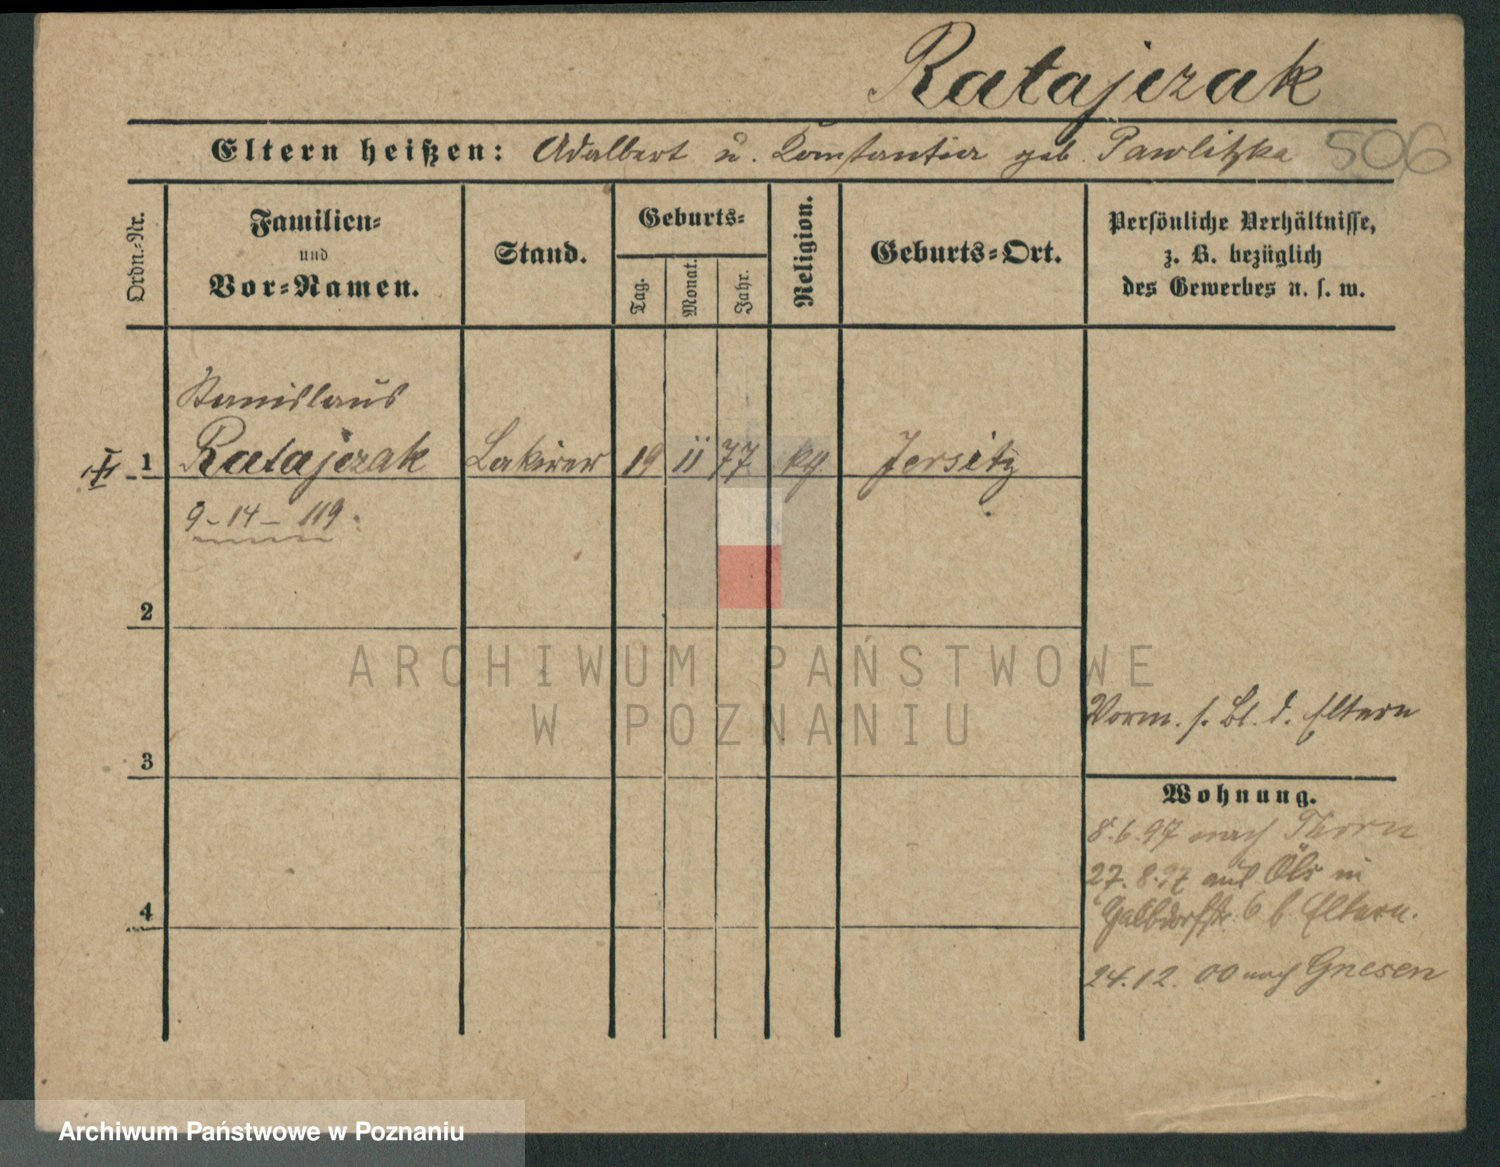 Ratajczak
Eltern heißen: Adalbert u. Constantia geb. Pawlitzka 506
Ordn.-Nr.
Familien-
und
Vor-Namen.
Stand.
Geburts-
Tag.
Monat.
Jahr.
Religion.
Geburts-Ort.
Persönliche Verhältnisse,
z. B. bezüglich
des Gewerbes u. s. w.
Stanislaus
1 Ratajczak Lakirer 19 11 77 Jersitz
9-14-119.
2
3
4
Vorm. s. Bl. d. Eltern
Wohnung.
8.6.97 nach Thorn
27.8.97 aus Öls in
6 b Eltern.
24.12.00 nach Gnesen
ARCHIWUM PAŃSTWOWE
W POZNANIU
Archiwum Państwowe w Poznaniu